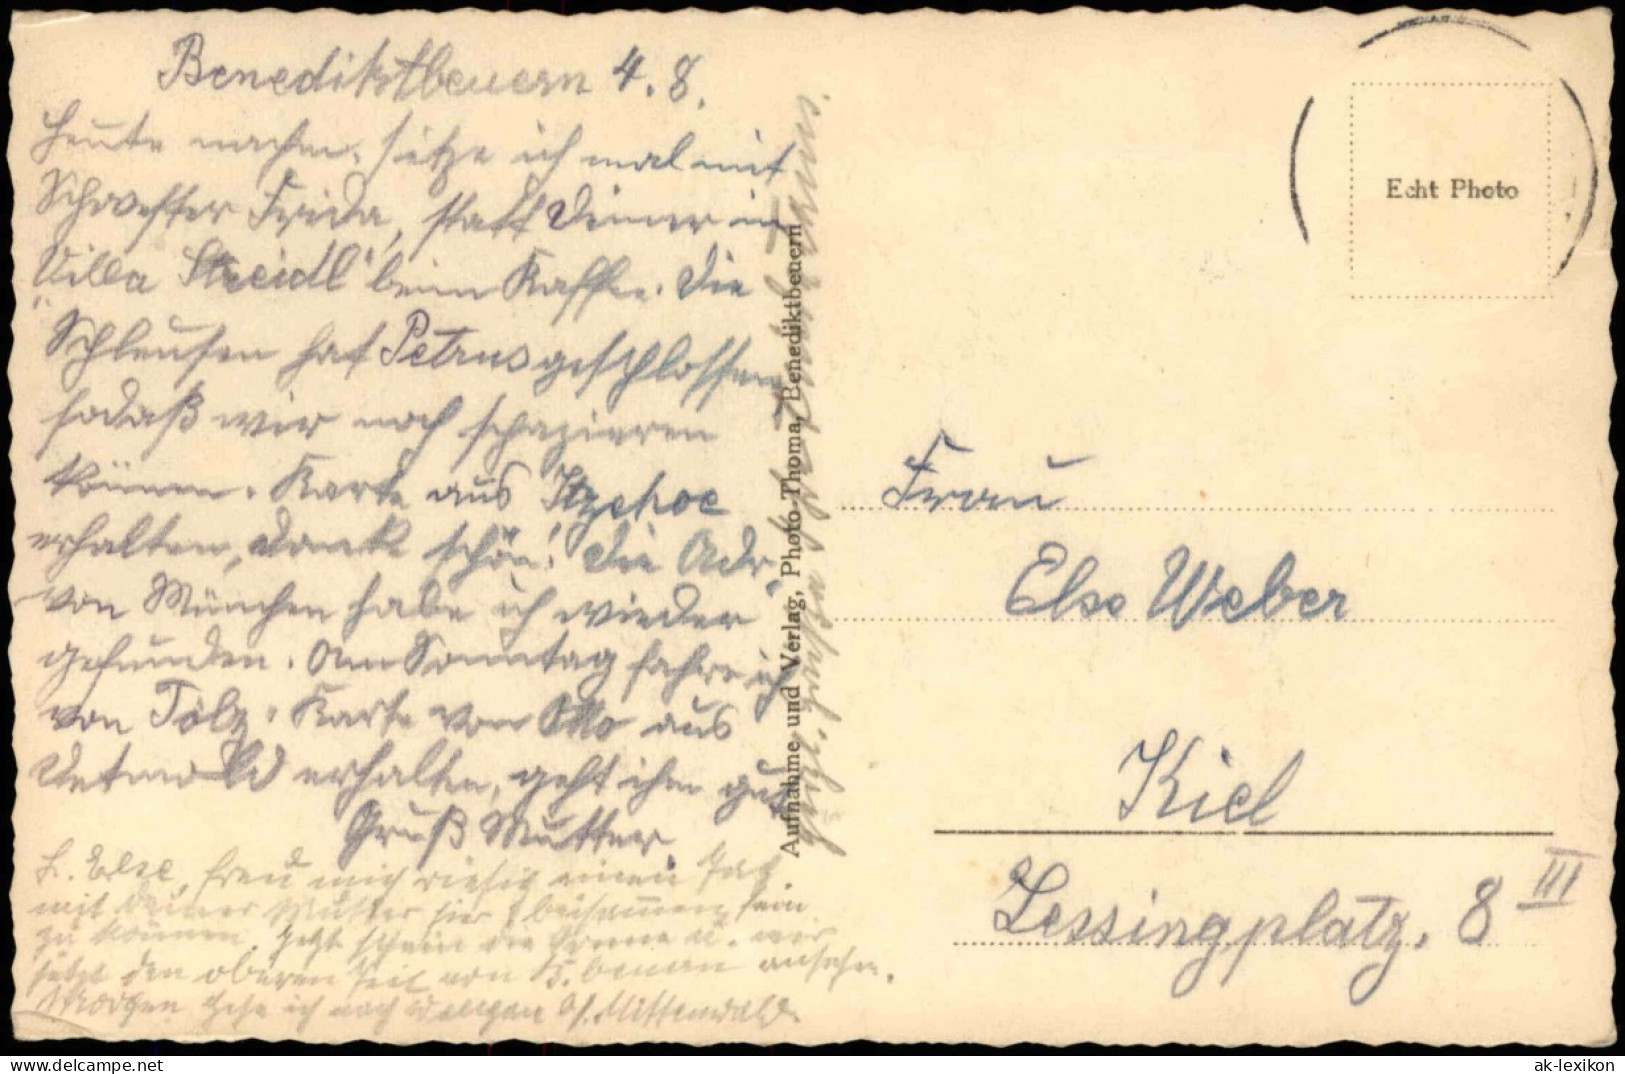 Benediktbeuern 4.8.
Heute nachm. sitze ich mal mit
Schwester Frida, statt Deiner in
"Villa Streidl" beim Kaffee. Die
Schleusen hat Petrus geschlossen
sodaß wir noch spazieren
können. Karte aus Itzehoe
erhalten, Dank schön! Die Adr.
von München habe ich wieder
gefunden. Am Sonntag fahre ich
von Tölz. Karte von Otto aus
Detmold erhalten, geht ihm gut
Gruß Mutter.
L. Else, freu mich riesig einen Tag
mit Deiner Mutter hier beisammen sein
zu können. Jetzt schein die Sonne u. wir
jetzt den oberen Teil von B. beuern ansehen.
Morgen gehe ich nach b/. Mittenwald.
Aufnahme und Verlag, Photo-Thoma, Benediktbeuern
Echt Photo
Frau
Else Weber
Kiel
Lessingplatz. 8 III
ak-lexikon.de
ak-lexikon